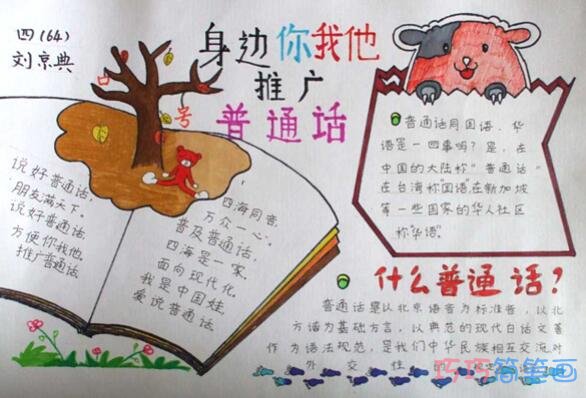 四(64)
刘京典
身边你我他
推广
普通话
口
号
说好普通话,
朋友满天下,
说好普通话,
方便你我他.
推广普通话.
四海同音,
万众一心,
普及普通话,
四海是一家.
面向现代化.
我是中国娃,
爱说普通话.
普通话同国语、华
语是一回事吗?是,在
中国的大陆称"普通话"
在台湾称"国语",在新加坡
等一些国家的华人社区
称"华语".
什么普通话?
普通话是以北京语音为标准音,以北
方话为基础方言,以典范的现代白话文著
作为语法规范,是我们中华民族相互交流对
外交性的
巧巧简笔画